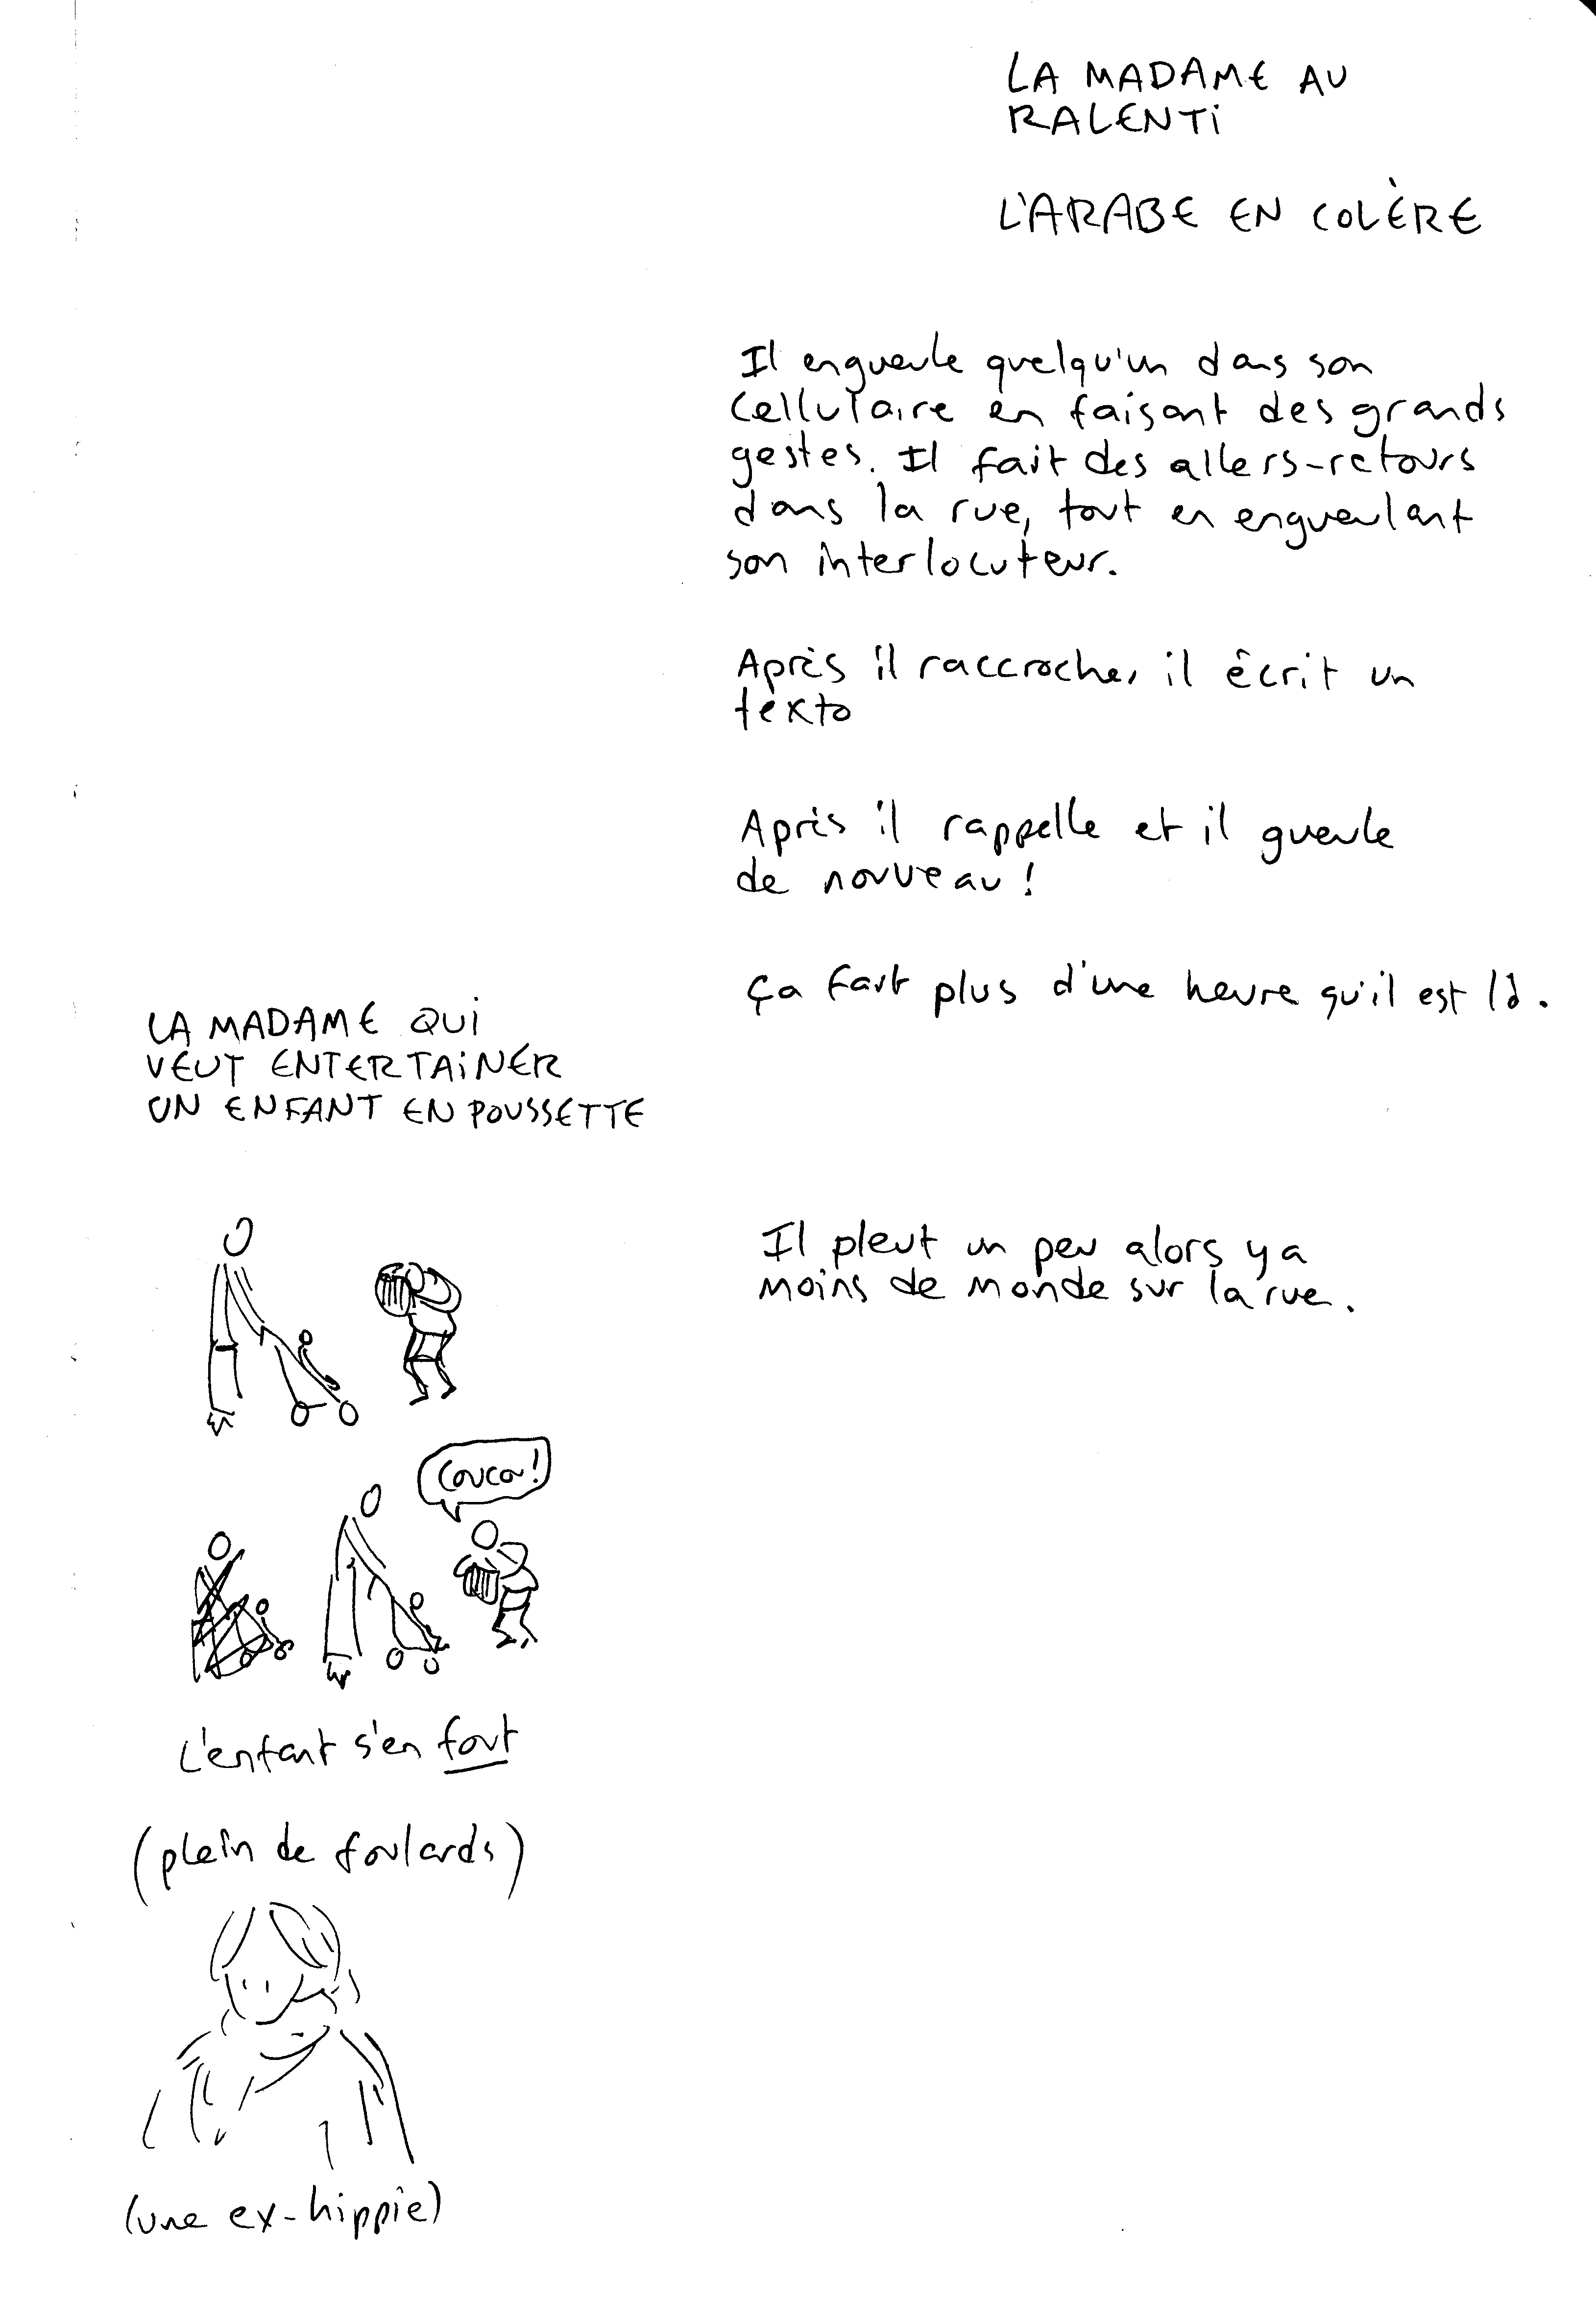 LA MADAME AU
RALENTI
L'ARABE EN COLÈRE
Il engueule quelqu'un dans son
cellulaire en faisant des grands
gestes. Il fait des allers-retours
dans la rue, tout en engueulant
son interlocuteur.
Après il raccroche, il écrit un
texto
Après il rappelle et il gueule
de nouveau !
Ça fait plus d'une heure qu'il est là.
Il pleut un peu alors y a
moins de monde sur la rue.
LA MADAME QUI
VEUT ENTERTAINER
UN ENFANT EN POUSSETTE
Coucou !
L'enfant s'en fout
(plein de foulards)
(une ex-hippie)